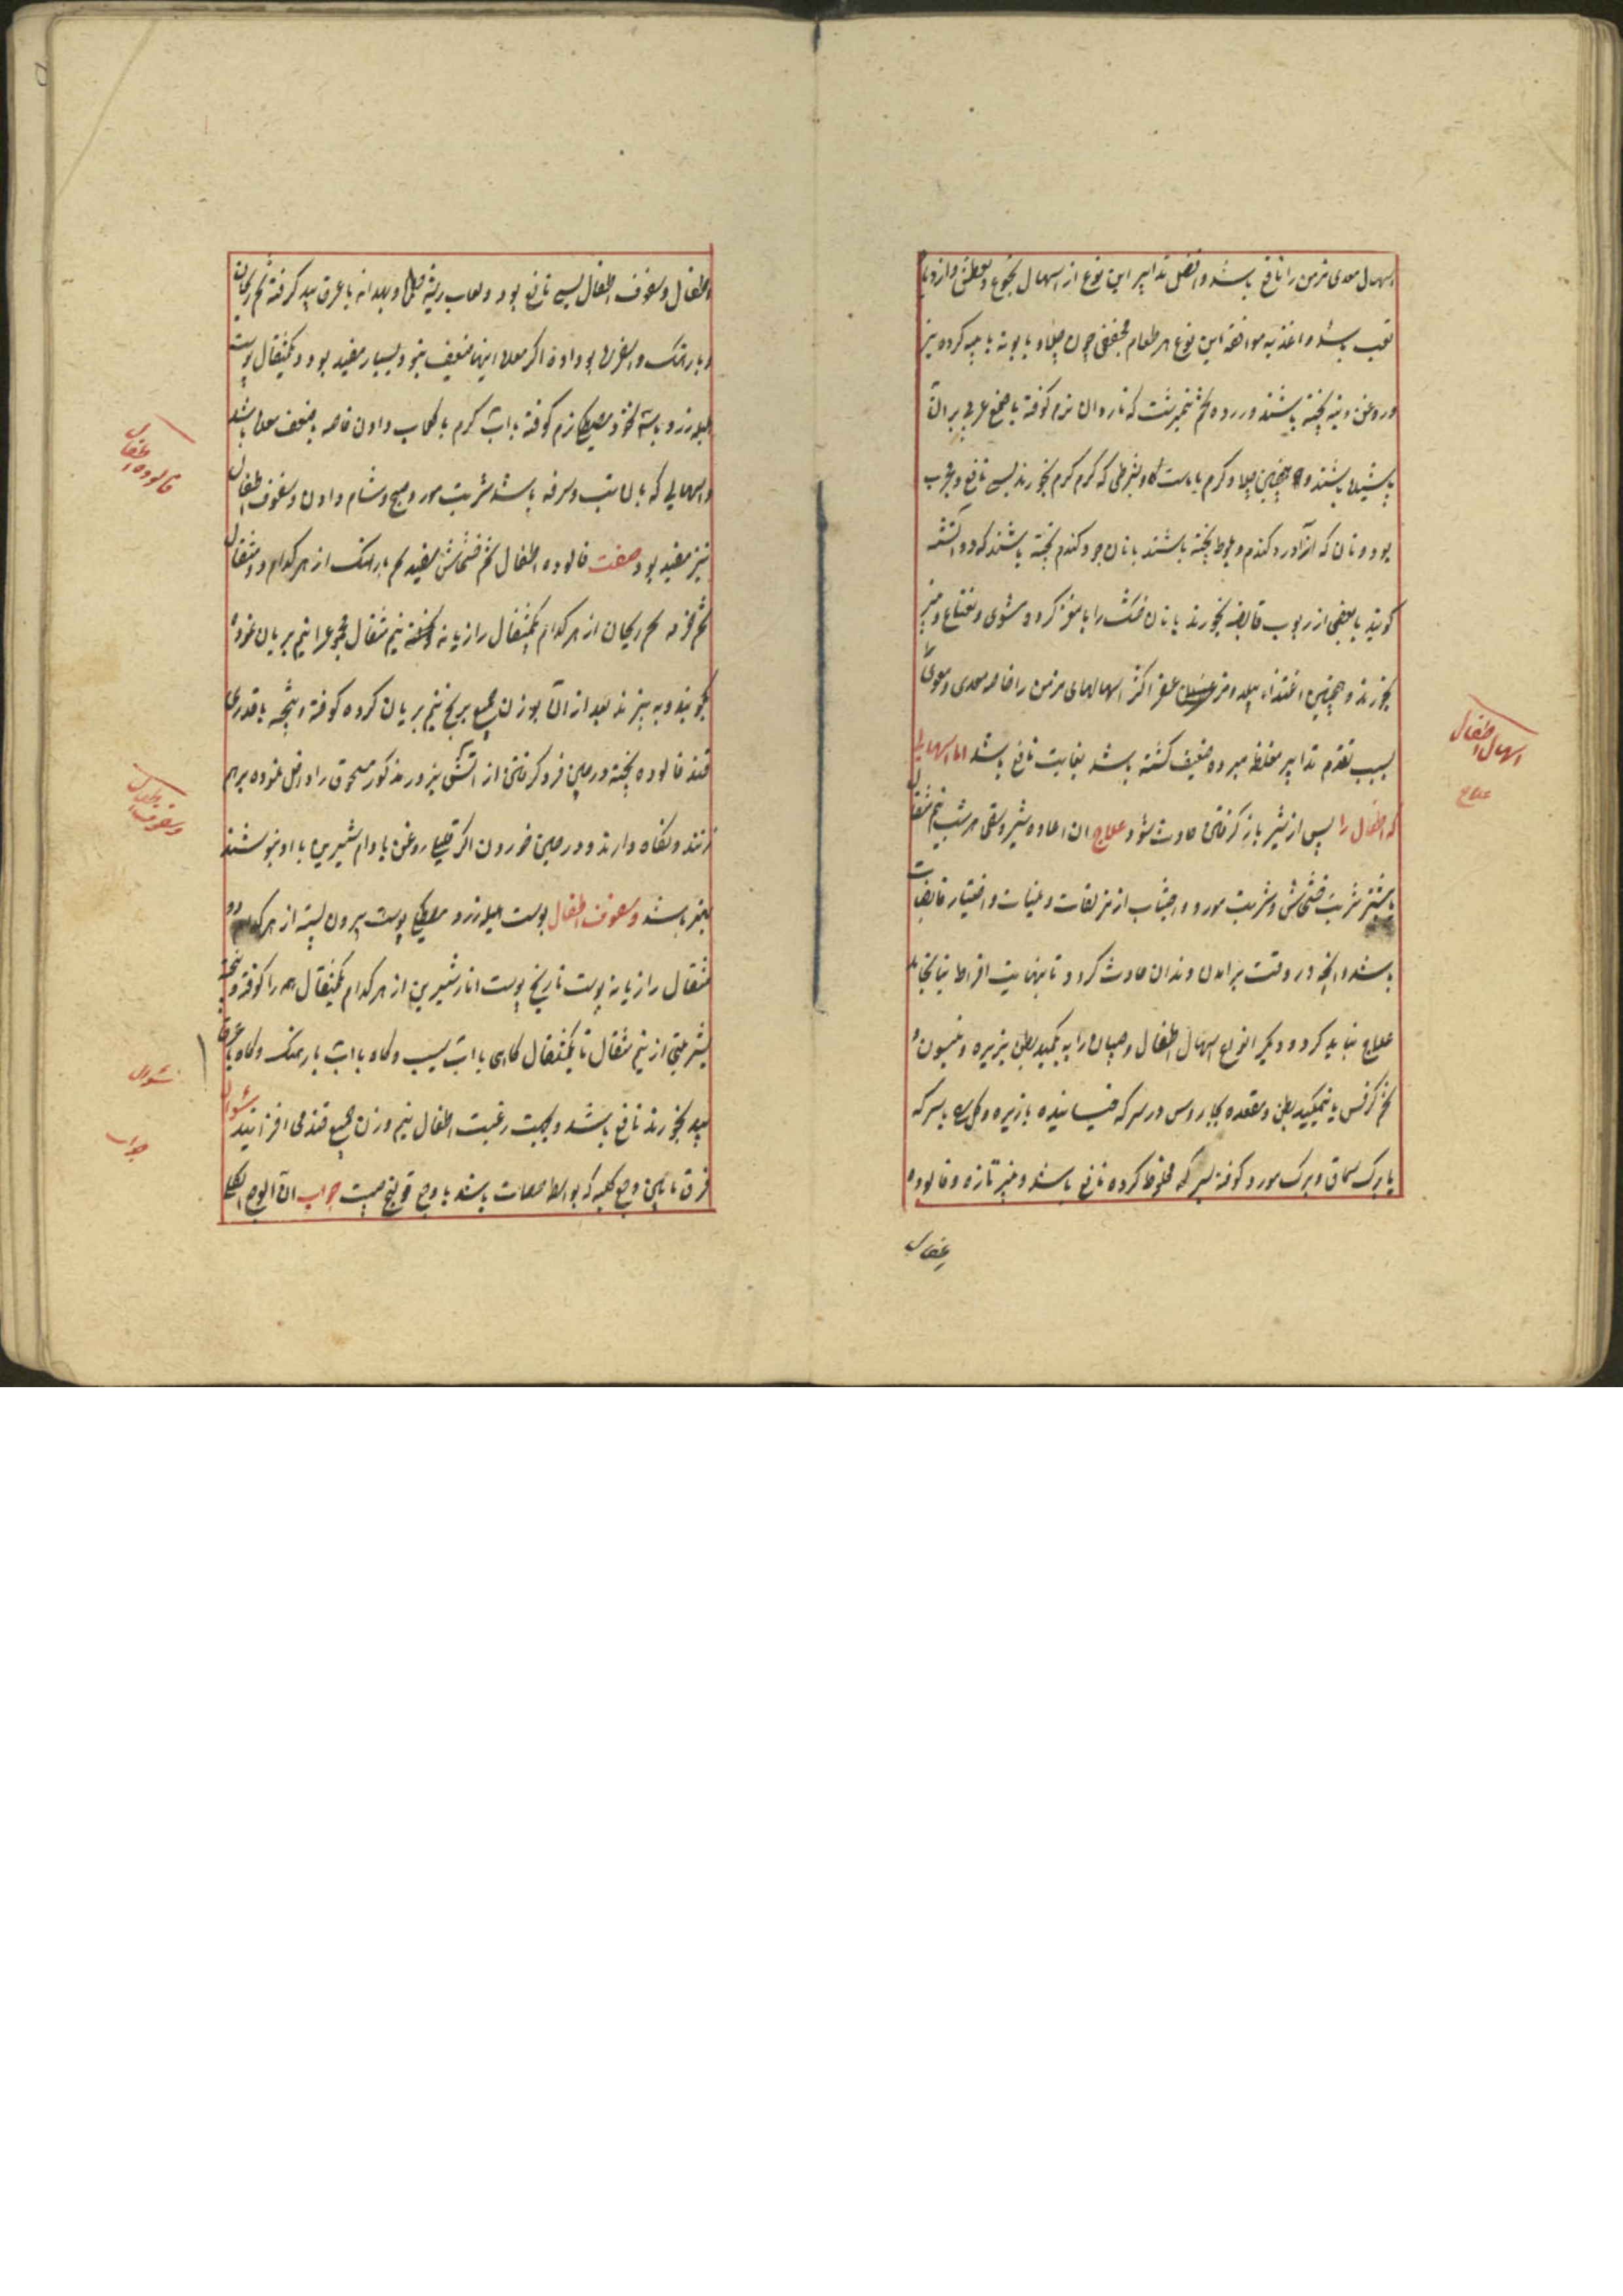 اسهال معدی مزمن را نافع باشد و افضل تدابیر این نوع از اسهال بجوع و تعطش و ازدیاد
تعب باشد و اغذیه موافقه این نوع هر طعام مجففی چون چلاو با بوته با پیه کرده بز
و روغن و پنبه پخته باشند و زرده تخم نیمبرشت که ناردان نرم کوفته با صمغ عربی بر آن
پاشیده باشند و همچنین چلاو گرم با ماست گاو بشرطی که گرم گرم بخورند بسی نافع و مجرب
بود و نان که از آرد گندم و بلوط پخته باشند یا نان جو و گندم پخته باشند که دو آتشه
گویند با بعضی از ربوب قابضه بخورند یا نان خشک را با مغز گردو مشوی و نعناع و پنیر
بخورند و همچنین اغتذاء پیله و مزعفر اکثر اسهالهای مزمن را خاصه معدی و معوی
بسبب تقدم تدابیر مغلظه مبرده ضعیف گشته باشد بغایت نافع باشد اما اسهالی
که اطفال را پس از شیر باز گرفتن حادث شود علاج آن اعاده شیر و سقی هر شب نیم مثقال
بیشتر شربت خشخاش و شربت مورد و اجتناب از مزلقات و ملینات و اختیار قابضات
باشد و آنچه در وقت برآمدن دندان حادث گردد تا بنهایت افراط نیانجامد
علاج نباید کرد و دیگر انواع اسهال اطفال و صبیان را به تکمید بطن بزیره و انیسون و
تخم کرفس یا بتکمید بطن و مقعده بجاورس در سرکه خیسانیده با زیره و گل سرخ با سرکه
یا برگ سماق و برگ مورد کوفته بسرکه مخلوط کرده نافع باشد و پنیر تازه و فالوده
اطفال
اسهال اطفال
علاج
اطفال و سفوف اطفال بسی نافع بود و لعاب ریشه خطمی و بهدانه با عرق بید گرفته تخم ریحان
و بارتنگ و اسفرزه بو داده اگر معده اینها ضعیف نبود بسیار مفید بود و یکمثقال پوست
هلیله زرد با سه نخود مصطکی نرم کوفته با آب گرم یا گلاب دادن خاصه بضعف معده باشد
و اسهالی که با آن تب و سرفه باشد شربت مورد صبح و شام دادن و سفوف اطفال
نیز مفید بود صفت فالوده اطفال تخم خشخاش سفید تخم بارتنگ از هر کدام دو مثقال
تخم خرفه تخم ریحان از هر کدام یکمثقال رازیانه نیم مثقال مجموع را نیم بریان نموده
بکوبند و به بیزند بعد از آن بوزن جمیع برنج نیم بریان کرده کوفته و بیخته با قدری
قند فالوده پخته در حین فرو گرفتن از آتش بزور مذکور مسحوق را داخل نموده برهم
زنند و نگاه دارند و در حین خوردن اگر قلیلی روغن بادام شیرین با او بنوشند
بهتر باشد و سفوف اطفال پوست هلیله زرد مصطکی پوست بیرون پسته از هر کدام دو
مثقال رازیانه پوست نارنج پوست انار شیرین از هر کدام یکمثقال همه را کوفته و بیخته
شربتی از نیم مثقال تا یکمثقال گاهی با آب سیب و گاه با آب بارتنگ و گاه با عرق
بید بخورند نافع باشد و بجهت رغبت اطفال نیم وزن جمیع قند می افزایند سؤال
فرق مابین وجع کلیه که بواسطه حصات باشد با وجع قولنج چیست جواب آن الوجع الکلی
فالوده اطفال
و سفوف اطفال
سؤال
جواب